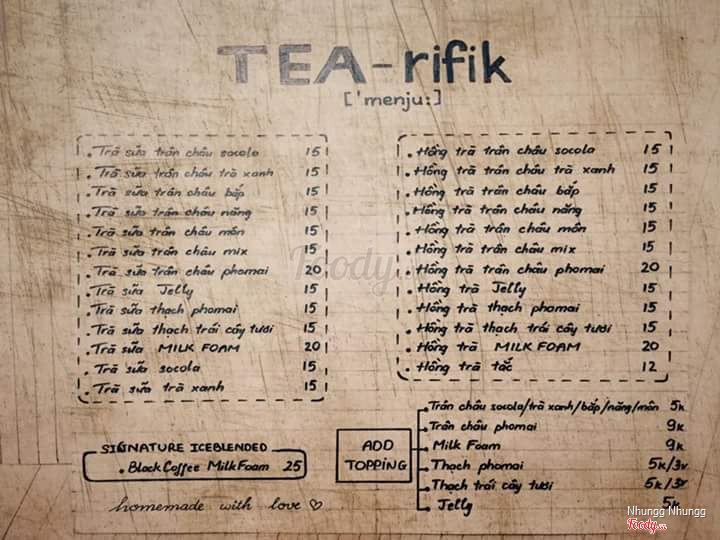 TEA-rifik
['menju:]
. Trà sữa trân châu socola 15
. Trà sữa trân châu trà xanh 15
. Trà sữa trân châu bắp 15
. Trà sữa trân châu năng 15
. Trà sữa trân châu môn 15
. Trà sữa trân châu mix 15
. Trà sữa trân châu phomai 20
. Trà sữa Jelly 15
. Trà sữa thạch phomai 15
. Trà sữa thạch trái cây tươi 15
. Trà sữa MILK FOAM 20
. Trà sữa socola 15
. Trà sữa trà xanh 15
SIGNATURE ICEBLENDED
. Black Coffee Milk Foam 25
homemade with love ♡
. Hồng trà trân châu socola 15
. Hồng trà trân châu trà xanh 15
. Hồng trà trân châu bắp 15
. Hồng trà trân châu năng 15
. Hồng trà trân châu môn 15
. Hồng trà trân châu mix 15
. Hồng trà trân châu phomai 20
. Hồng trà Jelly 15
. Hồng trà thạch phomai 15
. Hồng trà thạch trái cây tươi 15
. Hồng trà MILK FOAM 20
. Hồng trà tắc 12
ADD
TOPPING
Trân châu socola/trà xanh/bắp/năng/môn 5k
Trân châu phomai 9k
Milk Foam 9k
Thạch phomai 5k/3v
Thạch trái cây tươi 5k/3v
Jelly 5k
Foody
Nhungg Nhungg
Foody.vn